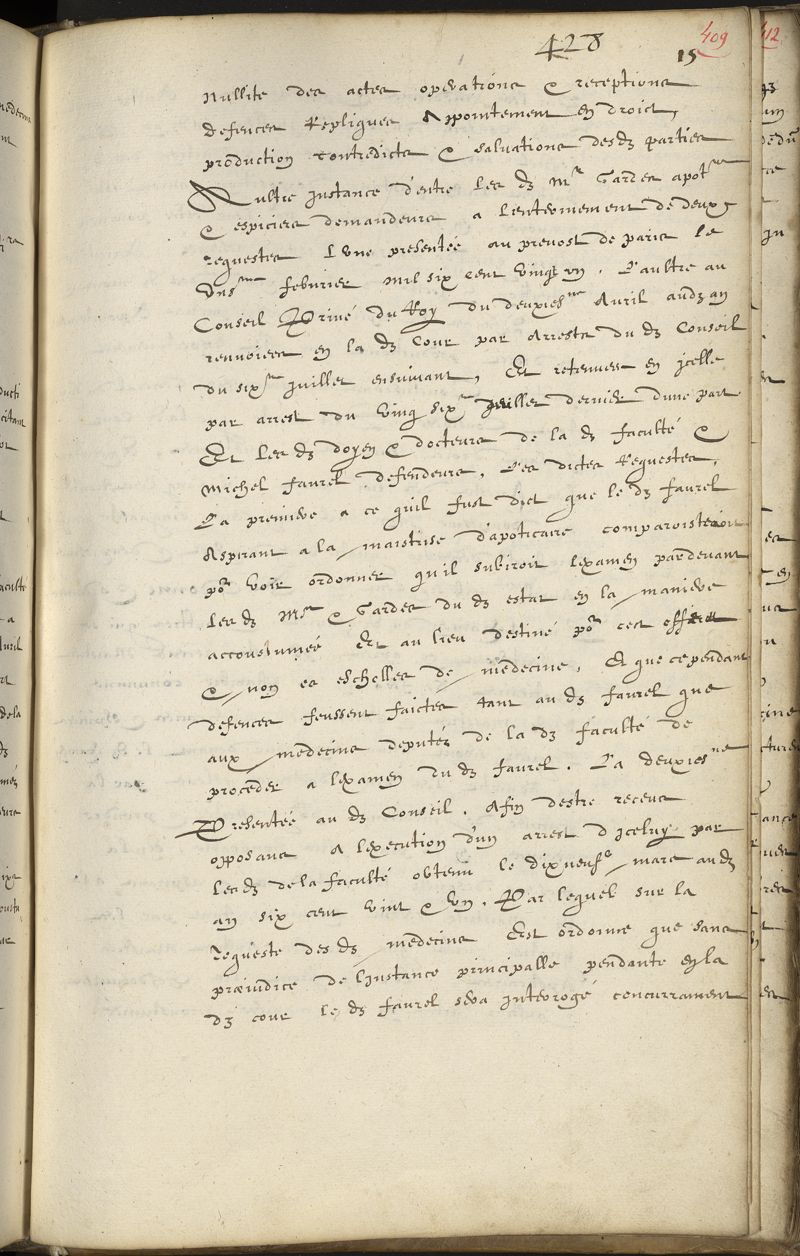 428
409
15
Nullite des actes operations & receptions
defences Repliques Appointement en droict,
production contredicts & salvations desd parties
Aultre instance d'entre les d Mes Gardes apotres
& espiciers demandeurs a lenterinement de deux
requestes Lune presentée au prevost de paris le
unsme febvrier mil six cent vingt un. L'aultre au
Conseil Privé du Roy du deuxiesme Avril aud an
renvoiees en la d Cour par Arrests du d Conseil
du sixe juillet ensuivant, Et retenues en icelle
par arrest du vingt sixe juillet dernier dune part
Et Les d doyen & docteurs de la d faculté &
Michel faurel defendeurs. Les dictes Requestes,
La premiere a ce quil fust dict que le d faurel
Aspirant a la maistrise d'apoticaire comparoistroit
por voir ordonner quil subiroit lexamen pardevant
les d Mes & Gardes du d estat en la maniere
accoustumée Et au lieu destiné por cest effect
& non es escholles de medecine, Et que cependant
defences feussent faictes tant au d faurel que
aux medecins deputéz de la d faculté de
proceder a lexamen du d faurel. La deuxiesme
Presentée au d Conseil. Afin destre receus
opposans A lexecution d'un arrest d'iceluy par
lesd de la faculté obtenu le dixneufe mars aud
an six cent vint & un. Par lequel sur la
requeste des d medecins Est ordonne que sans
præiudice de linstance principalle pendante en la
d cour le d faurel sera interrogé concurrament